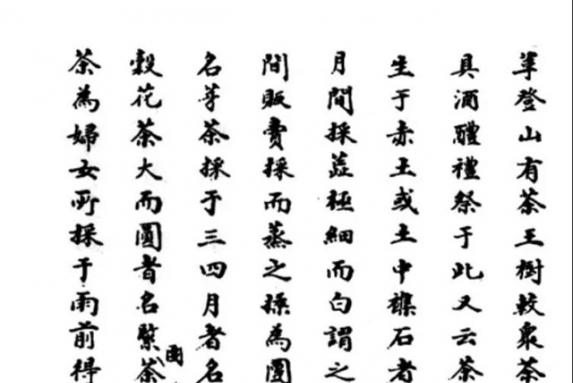 革登山有茶王樹較衆茶
具酒醴禮祭于此又云茶
生于赤土或土中雜石者
月間採蕋極細而白謂之
間販賣採而蒸之揉為團
名芽茶採于三四月者名
穀花茶大而圓者名緊團茶
茶為婦女所採于雨前得